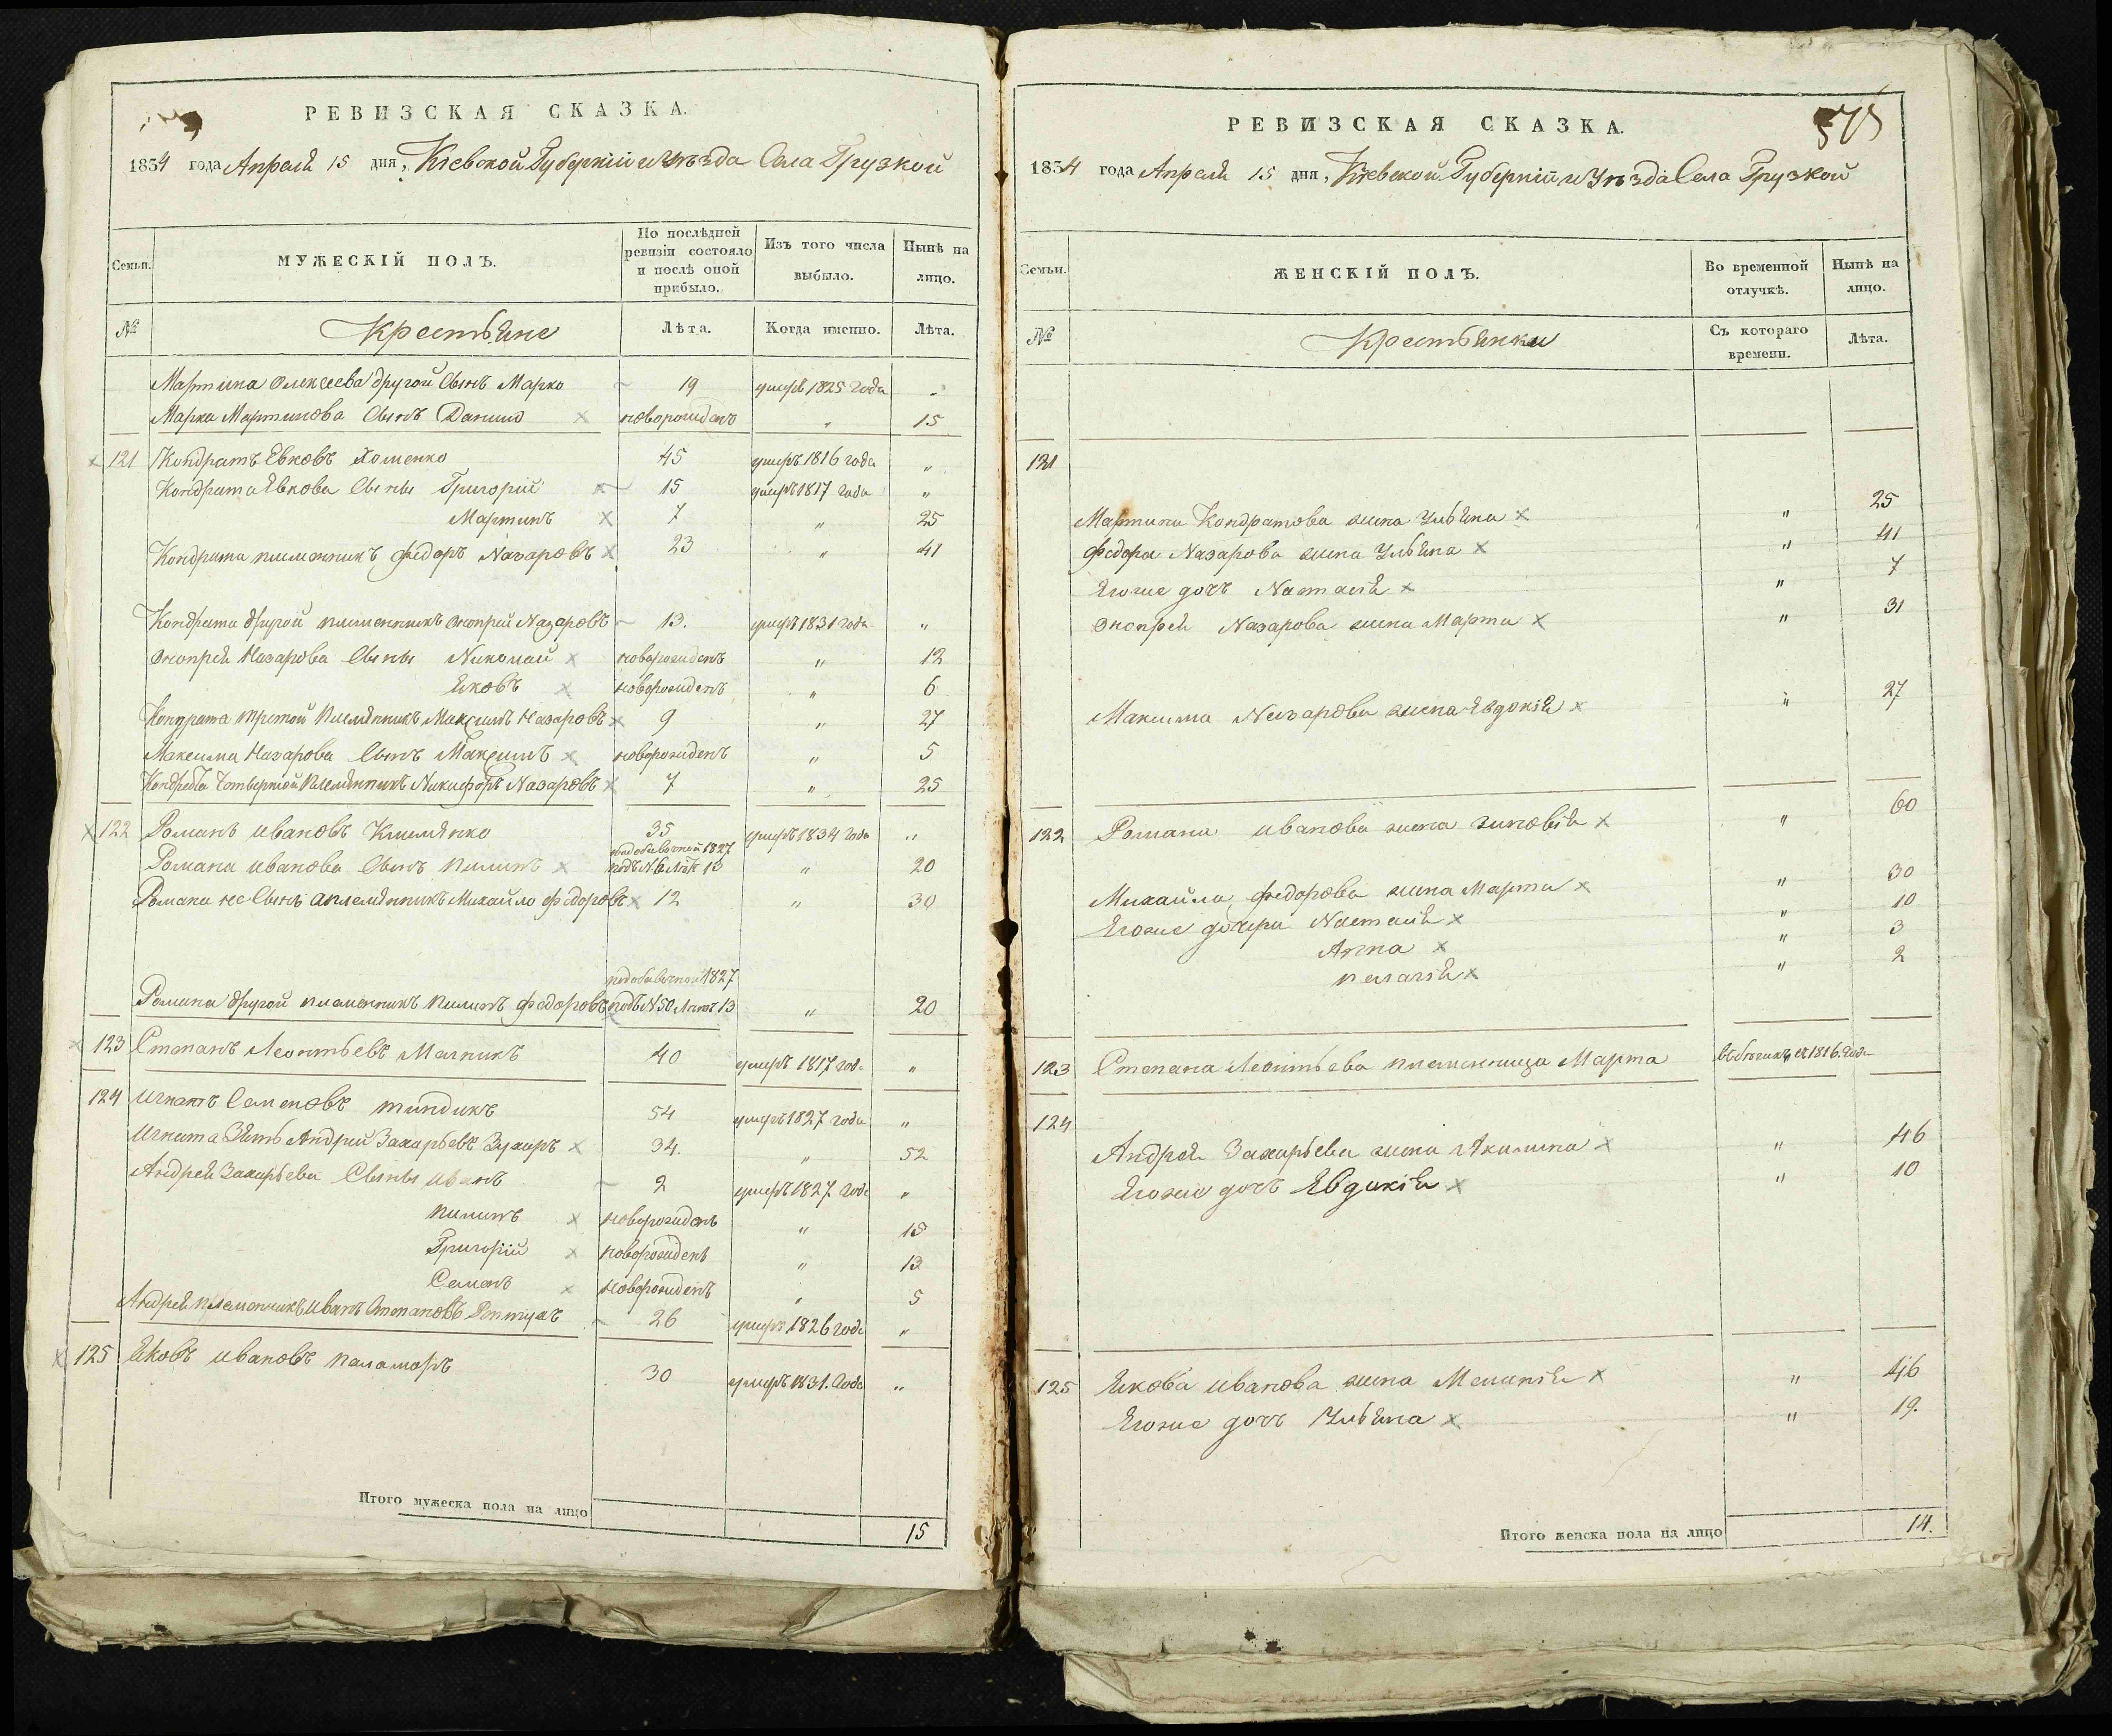 РЕВИЗСКАЯ СКАЗКА.
1834 года Апреля 15 дня, Кіевской Губерніи и Уѣзда Села Грузкой
Семьи.
МУЖЕСКІЙ ПОЛЪ.
По послѣдней ревизіи состояло и послѣ оной прибыло.
Изъ того числа выбыло.
Нынѣ на лицо.
№
Крестьяне
Лѣта.
Когда именно.
Лѣта.
Мартина Олексеева другой Сынъ Марко 19 умеръ 1825 года „
Марка Мартинова Сынъ Данило новорожденъ „ 15
121 Кондратъ Евковъ Хоменко 45 умеръ 1816 года „
Кондрата Явкова Сыны Григорій 15 умеръ 1817 года „
Мартинъ 7 „ 25
Кондрата племенникъ Федоръ Назаровъ 23 „ 41
Кондрата другой племенникъ Онопрій Назаровъ 13. умеръ 1831 года „
Онопрея Назарова Сыны Николай новорожденъ „ 12
Яковъ новорожденъ „ 6
Кондрата третой Племянникъ Максимъ Назаровъ 9 „ 27
Максима Назарова Сынъ Максимъ новорожденъ „ 5
Кондрата Четвертой Племянникъ Никифоръ Назаровъ 7 „ 25
122 Романъ Ивановъ Климянко 35 умеръ 1834 года „
подобавочной 1827
Романа Иванова Сынъ Пилипъ подъ N 6 Лѣтъ 13 „ 20
Романа не Сынъ а племянникъ Михайло Федоровъ 12 „ 30
подобавочной 1827
Романа другой племенникъ Пилипъ Федоровъ подъ N 50 Лѣтъ 13 „ 20
123 Степанъ Леонтьевъ Мелникъ 40 умеръ 1817 года „
124 Игнатъ Семеновъ Тиндикъ 54 умеръ 1827 года „
Игната Зять Андрей Захарьевъ 34. „ 52
Андрея Захарьева Сыны Иванъ 2 умеръ 1827 года „
Пилипъ новорожденъ „ 15
Григорій новорожденъ „ 13
Семенъ новорожденъ „ 5
Андрея племенникъ Иванъ Степановъ 26 умеръ 1826 года „
125 Яковъ Ивановъ Паламаръ 30 умеръ 1831. года „
Итого мужеска пола на лицо 15
РЕВИЗСКАЯ СКАЗКА.
1834 года Апреля 15 дня, Кіевской Губерніи и Уѣзда Села Грузкой
Семьи.
ЖЕНСКІЙ ПОЛЪ.
Во временной отлучкѣ.
Нынѣ на лицо.
№
Крестьянки
Съ котораго времени.
Лѣта.
121
Мартина Кондратова жена Ульяна „ 25
Федора Назарова жена Ульяна „ 41
Егоже дочъ Настасія „ 7
Онопрея Назарова жена Марта „ 31
Максима Назарова жена Явдокія „ 27
122 Романа Иванова жена Зиновія „ 60
Михайла Федорова жена Марта „ 30
Егоже дочери Настасія „ 10
Анна „ 3
Пелагія „ 2
123 Степана Леонтьева племенница Марта въ бегахъ съ 1816. года
124
Андрея Захарьева жена Акилина „ 46
Егоже дочъ Евдокія „ 10
125 Якова Иванова жена Меланія „ 46
Егоже дочъ Ульяна „ 19.
Итого женска пола на лицо 14.